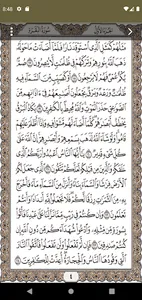 8:48
مَثَلُهُمْ كَمَثَلِ ٱلَّذِى ٱسْتَوْقَدَ نَارًا فَلَمَّآ أَضَآءَتْ مَا حَوْلَهُۥ
ذَهَبَ ٱللَّهُ بِنُورِهِمْ وَتَرَكَهُمْ فِى ظُلُمَٰتٍ لَّا يُبْصِرُونَ ١٧
صُمٌّۢ بُكْمٌ عُمْىٌ فَهُمْ لَا يَرْجِعُونَ ١٨ أَوْ كَصَيِّبٍ مِّنَ ٱلسَّمَآءِ
فِيهِ ظُلُمَٰتٌ وَرَعْدٌ وَبَرْقٌ يَجْعَلُونَ أَصَٰبِعَهُمْ فِىٓ ءَاذَانِهِم
مِّنَ ٱلصَّوَٰعِقِ حَذَرَ ٱلْمَوْتِ وَٱللَّهُ مُحِيطٌۢ بِٱلْكَٰفِرِينَ ١٩
يَكَادُ ٱلْبَرْقُ يَخْطَفُ أَبْصَٰرَهُمْ كُلَّمَآ أَضَآءَ لَهُم مَّشَوْا۟ فِيهِ
وَإِذَآ أَظْلَمَ عَلَيْهِمْ قَامُوا۟ وَلَوْ شَآءَ ٱللَّهُ لَذَهَبَ بِسَمْعِهِمْ
وَأَبْصَٰرِهِمْ إِنَّ ٱللَّهَ عَلَىٰ كُلِّ شَىْءٍ قَدِيرٌ ٢٠ يَٰٓأَيُّهَا ٱلنَّاسُ ٱعْبُدُوا۟ رَبَّكُمُ ٱلَّذِى
خَلَقَكُمْ وَٱلَّذِينَ مِن قَبْلِكُمْ لَعَلَّكُمْ تَتَّقُونَ ٢١ ٱلَّذِى
جَعَلَ لَكُمُ ٱلْأَرْضَ فِرَٰشًا وَٱلسَّمَآءَ بِنَآءً وَأَنزَلَ مِنَ ٱلسَّمَآءِ
مَآءً فَأَخْرَجَ بِهِۦ مِنَ ٱلثَّمَرَٰتِ رِزْقًا لَّكُمْ فَلَا تَجْعَلُوا۟ لِلَّهِ
أَندَادًا وَأَنتُمْ تَعْلَمُونَ ٢٢ وَإِن كُنتُمْ فِى رَيْبٍ مِّمَّا نَزَّلْنَا
عَلَىٰ عَبْدِنَا فَأْتُوا۟ بِسُورَةٍ مِّن مِّثْلِهِۦ وَٱدْعُوا۟ شُهَدَآءَكُم
مِّن دُونِ ٱللَّهِ إِن كُنتُمْ صَٰدِقِينَ ٢٣ فَإِن لَّمْ تَفْعَلُوا۟ وَلَن تَفْعَلُوا۟
فَٱتَّقُوا۟ ٱلنَّارَ ٱلَّتِى وَقُودُهَا ٱلنَّاسُ وَٱلْحِجَارَةُ أُعِدَّتْ لِلْكَٰفِرِينَ ٢٤
٤